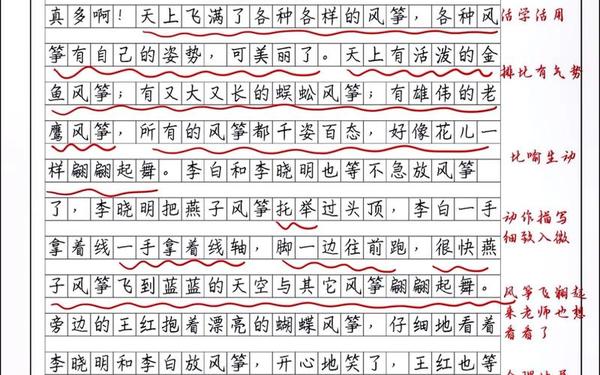 真多啊！天上飞满了各种各样的风筝，各种风
活学活用
筝有自己的姿势，可美丽了。天上有活泼的金
排比有气势
鱼风筝；有又大又长的蜈蚣风筝；有雄伟的老
鹰风筝，所有的风筝都千姿百态，好像花儿一
比喻生动
样翩翩起舞。李白和李晓明也等不急放风筝
了，李晓明把燕子风筝托举过头顶，李白一手
动作描写
细致入微
拿着线一手拿着线轴，脚一边往前跑，很快燕
子风筝飞到蓝蓝的天空与其它风筝翩翩起舞。
风筝飞翩起
来老师也想
看看了
旁边的王红抱着漂亮的蝴蝶风筝，仔细地看着
李晓明和李白放风筝，开心地笑了，王红也等